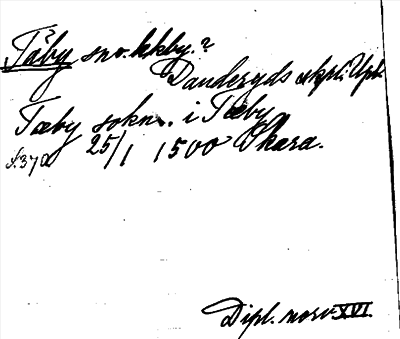 Täby sno. kkby.?
Danderyds skpl. Upl.
Tæby sokn. i Tæby
25/1 1500 Skara.
s. 370
Dipl. norv. XVI.